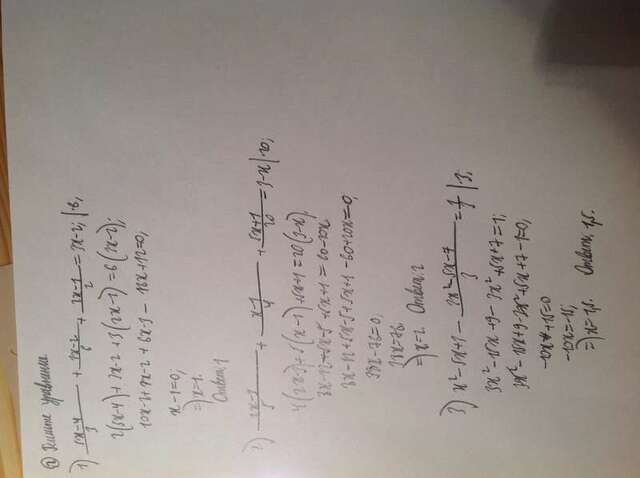 ② Решите уравнения
1) (5x-4)/3 + (3x-2)/6 + (2x-1)/2 = 3x-2; |·6;
2(5x-4)+3x-2+3(2x-1)=6(3x-2);
x-1=0;
=> x=1.
Ответ. 1
2) (2x-3)/5 + (x-1)/4 + (5x+1)/20 = 3-x |·20;
4(2x-3)+5(x-1)+5x+1=20(3-x);
8x-12+5x-5+5x+1=60-20x
8x-12+5x-5+5x+1-60+20x=0;
38x-76=0;
38x=76;
=> x=2. Ответ. 2
3) x²-5x+3 - (3x²-5x-7)/3 = 1 |·3;
3x²-15x+9-3x²+5x+7=1;
3x²-15x+9-3x²+5x+7-1=0;
-10x+15=0
-10x=-15;
=> x=1,5. Ответ. 1,5.